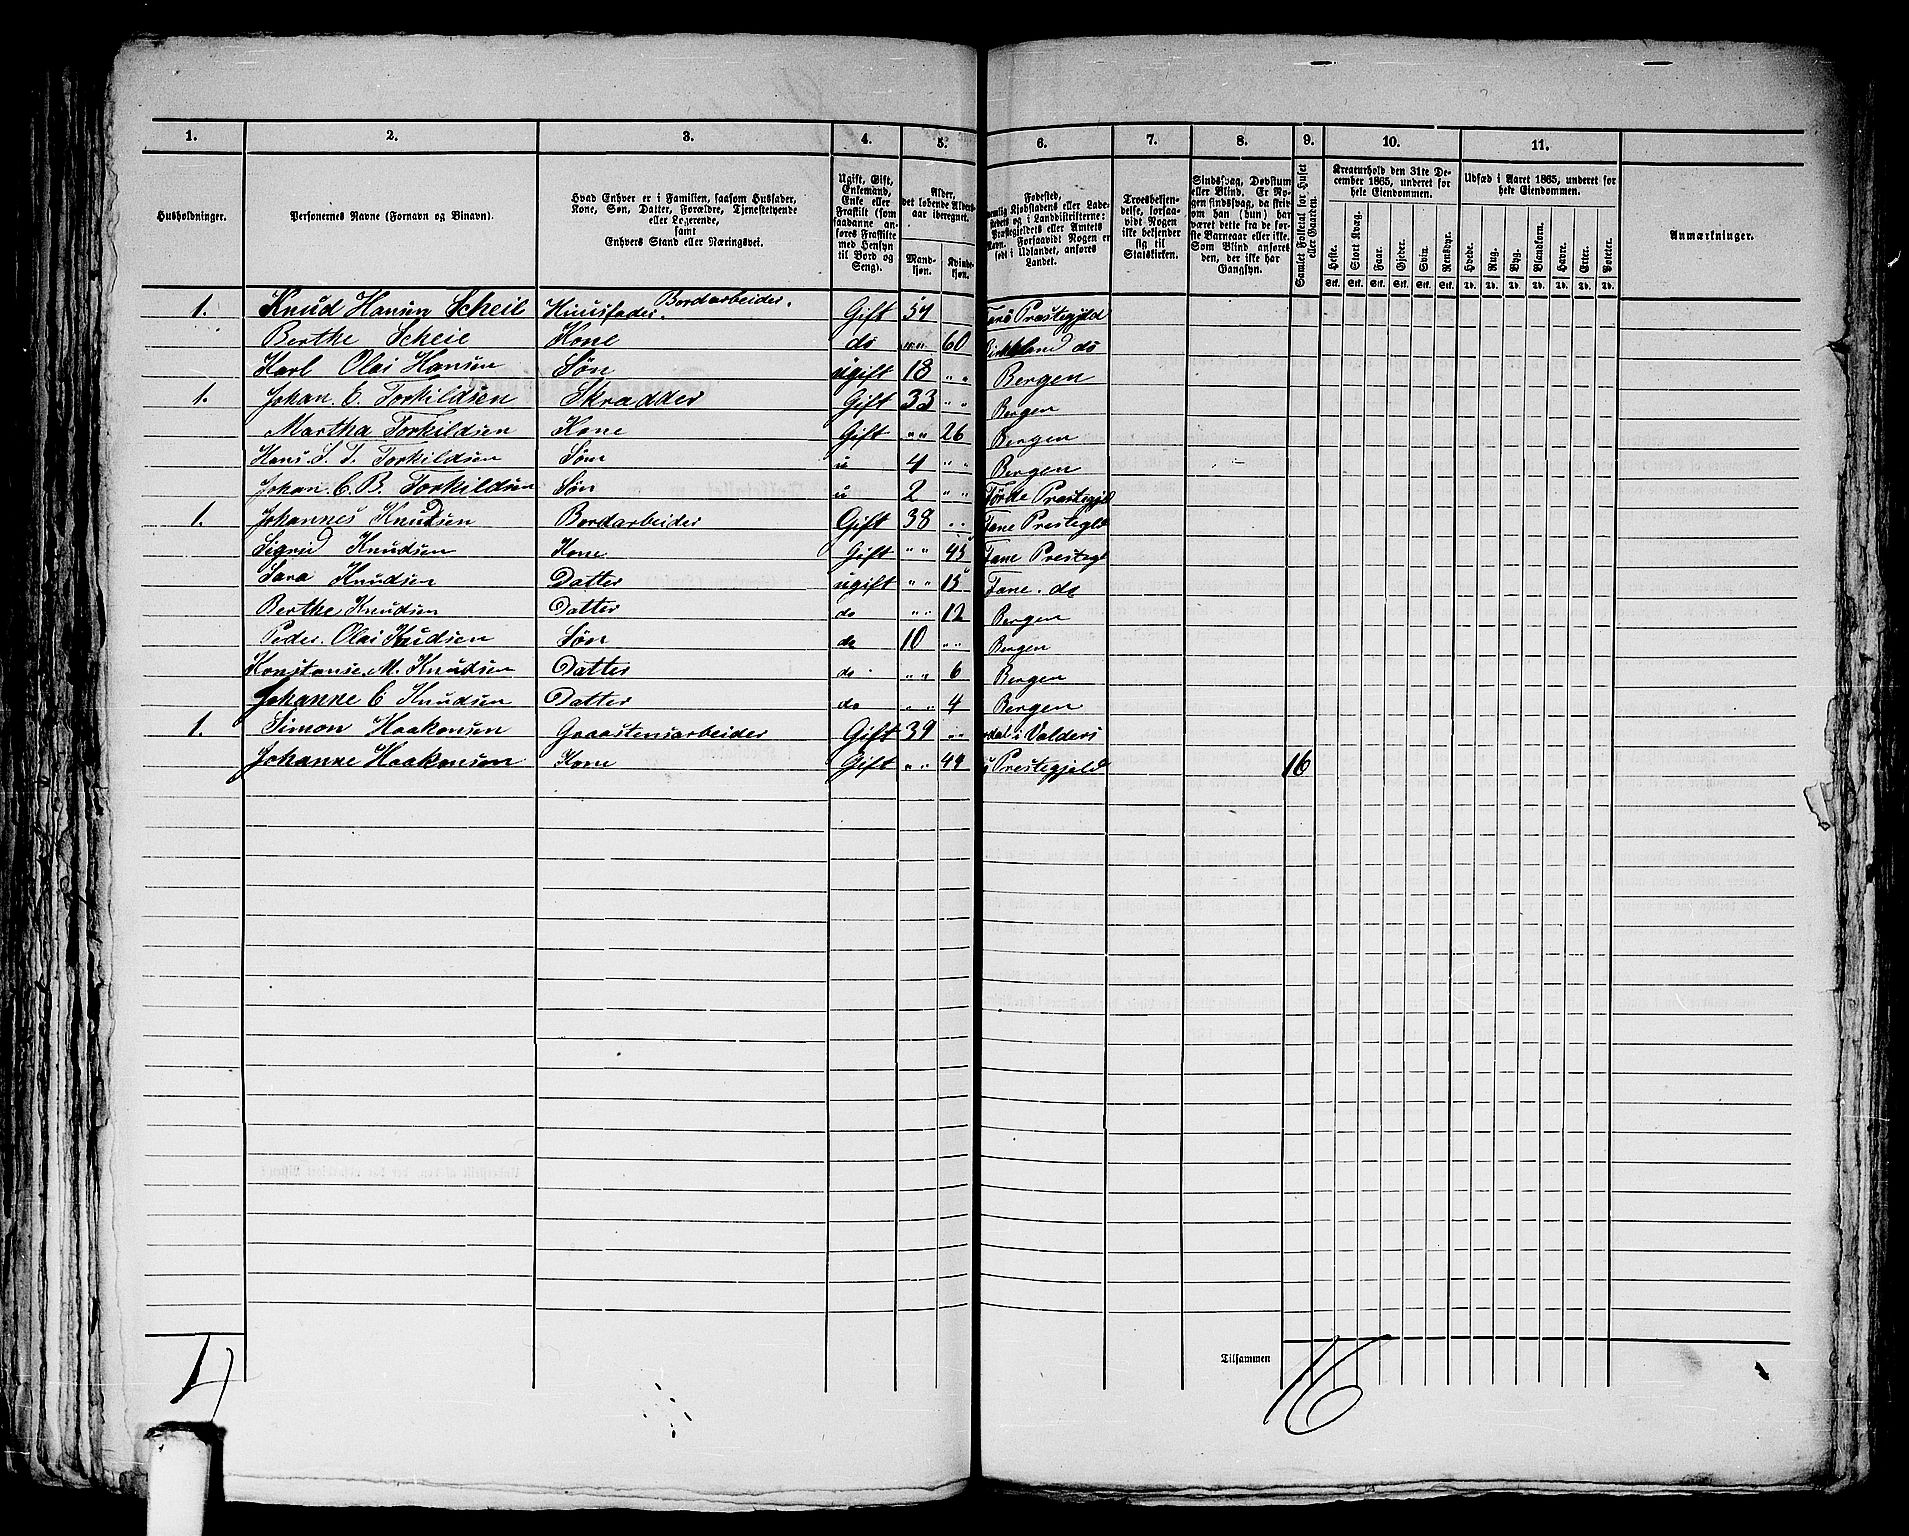 1. 2. 3. 4. 5. 6. 7. 8. 9. 10. 11.
Husholdninger.
Personernes Navne (Fornavn og Binavn).
Hvad Enhver er i Familien, saasom Husfader,
Kone, Søn, Datter, Forældre, Tjenestetyende
eller Logerende,
samt
Enhvers Stand eller Næringsvei.
Ugift, Gift,
Enkemand,
Enke eller
Fraskilt (som
saadanne an-
føres Fraskilte
med Hensyn
til Bord og
Seng).
Alder,
det løbende Alders-
aar iberegnet.
Mand-
kjøn.
Kvinde-
kjøn.
Fødested,
nemlig Kjøbstadens eller Lade-
stedets og i Landdistrikterne:
Præstegjeldets eller Amtets
Navn. Forsaavidt Nogen er
født i Udlandet, anføres
Landet.
Troesbekjen-
delse, forsaa-
vidt Nogen
ikke bekjender
sig til
Statskirken.
Sindssvag, Døvstum
eller Blind. Er No-
gen sindssvag, da skriv
om han (hun) har
været dette fra de før-
ste Barneaar eller ikke.
Som Blind anføres
den, der ikke har
Gangsyn.
Samlet Folketal for Huset
eller Gaarden.
Kreaturhold den 31te De-
cember 1865, underet for
hele Eiendommen.
Heste. Stort Kvæg. Faar. Gjeder. Svin. Rensdyr.
Stk. Stk. Stk. Stk. Stk. Stk.
Udsæd i Aaret 1865, underet for
hele Eiendommen.
Hvede. Rug. Byg. Blandkorn. Havre. Erter. Poteter.
Td. Td. Td. Td. Td. Td. Td.
Anmærkninger.
1. Knud Hansen Scheie Huusfader. Bordarbeider. Gift 57 Præstegjeld
Berthe Scheie Kone do " " 60 Birkeland do
Karl Olai Hansen Søn ugift 18 " " Bergen
1. Johan. C. Torkildsen Skrædder Gift 33 " " Bergen
Martha Torkildsen Kone Gift " " 26 Bergen
Hans. S. T. Torkildsen Søn u 4 " " Bergen
Johan. C. B. Torkildsen Søn u 2 " " Førde Præstegjel
1. Johannes Knudsen Bordarbeider Gift 38 " " Fane Prestegl
Sigrid Knudsen Kone Gift " " 45 Fane Prestegl
Sara Knudsen Datter ugift " " 15 Fane. do
Berthe Knudsen Datter do " " 12 Bergen
Peder. Olai Knudsen Søn do 10 " " Bergen
Konstanse. M. Knudsen Datter do " " 6 Bergen
Johanne C Knudsen Datter do " " 4 Bergen
1. Simon Haakonsen Graastensarbeider Gift 39 " " i Valders
Johanne Haakonsen Kone Gift " " 44 Prestegjeld 16
4 Tilsammen 16